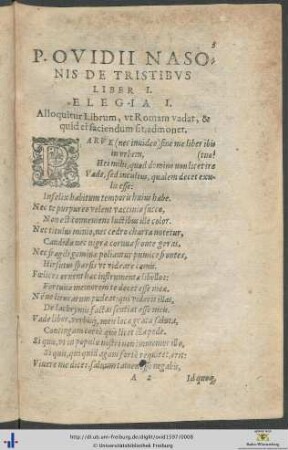 3
P. OVIDII NASO-
NIS DE TRISTIBVS
LIBER I.
ELEGIA I.
Alloquitur Librum, vt Romam vadat, &
quid ei faciendum sit, admonet.
PARVE (nec inuideo) sine me liber ibis
in vrbem,
Hei mihi, quod domino non licet ire tuo!
Vade, sed incultus, qualem decet exu-
lis esse:
Infelix habitum temporis huius habe.
Nec te purpureo velent vaccinia succo,
Non est conueniens luctibus ille color.
Nec titulus minio, nec cedro charta notetur,
Candida nec nigra cornua fronte geras.
Nec fragili geminæ poliantur pumice frontes,
Hirsutus sparsis vt videare comis.
Fœlices ornent hæc instrumenta libellos:
Fortunæ memorem te decet esse meæ.
Ne lituraru̅ pudeat; qui viderit illas,
De lachrymis factas sentiat esse meis.
Vade liber, verbisq́; meis loca grata saluta,
Contingam certè quò licet illa pede.
Si quis, vt in populo, nostri non immemor illo,
Si quis, qui, quid agam fortè requirat, erit:
Viuere me dices, saluum tamen esse negabis,
A 2 Id quoq;
http://dl.ub.uni-freiburg.de/diglit/ovid1597/0008
© Universitätsbibliothek Freiburg
Baden-Württemberg